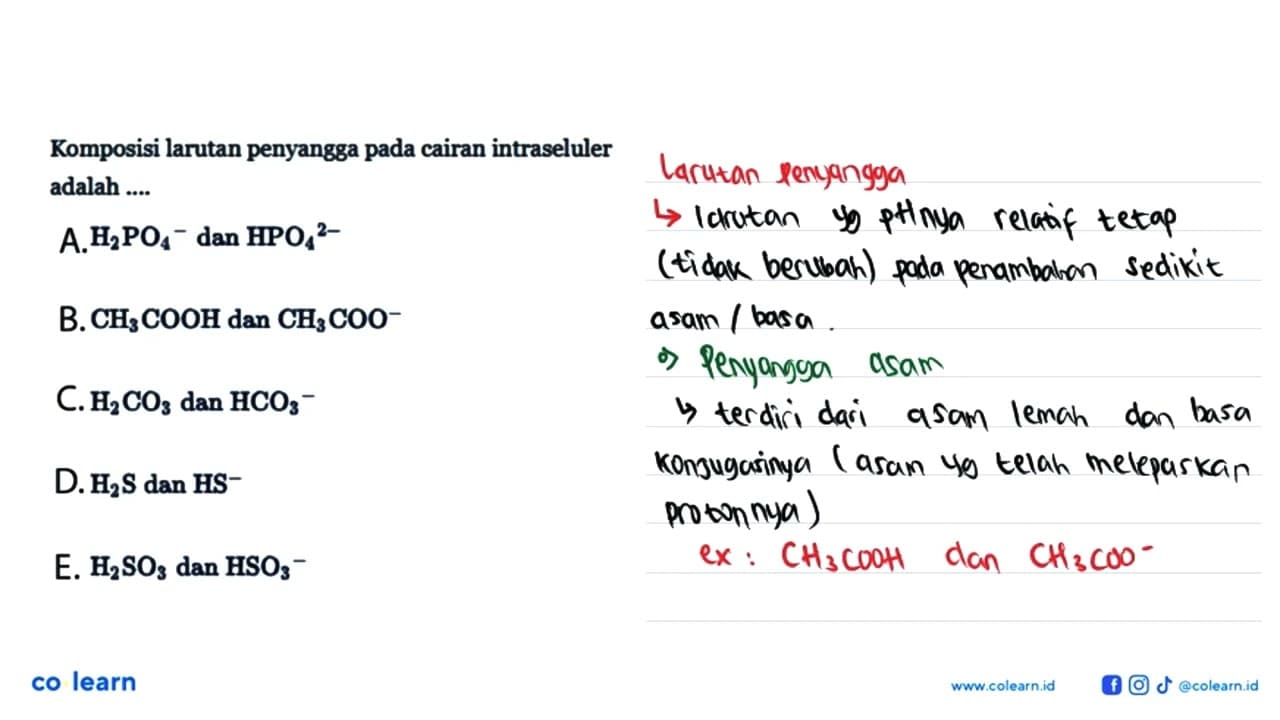 Komposisi larutan penyangga pada cairan intraseluler
adalah ....
A. H₂PO₄⁻ dan HPO₄²⁻
B. CH₃COOH dan CH₃COO⁻
C. H₂CO₃ dan HCO₃⁻
D. H₂S dan HS⁻
E. H₂SO₃ dan HSO₃⁻
Larutan Penyangga
↳ larutan yg pHnya relatif tetap
(tidak berubah) pada penambahan sedikit
asam / basa.
Penyangga asam
↳ terdiri dari asam lemah dan basa
konjugasinya (asam yg telah melepaskan
protonnya)
ex : CH₃COOH dan CH₃COO⁻
co learn
www.colearn.id @colearn.id